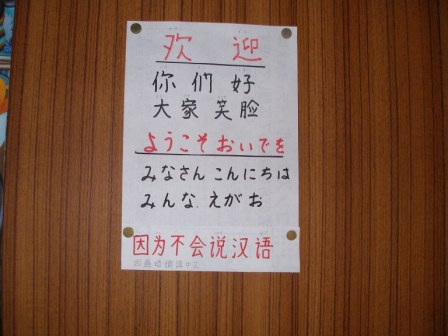 欢迎
你们好
大家笑脸
ようこそおいでを
みなさんこんにちは
みんな.えがお
因为不会说汉语